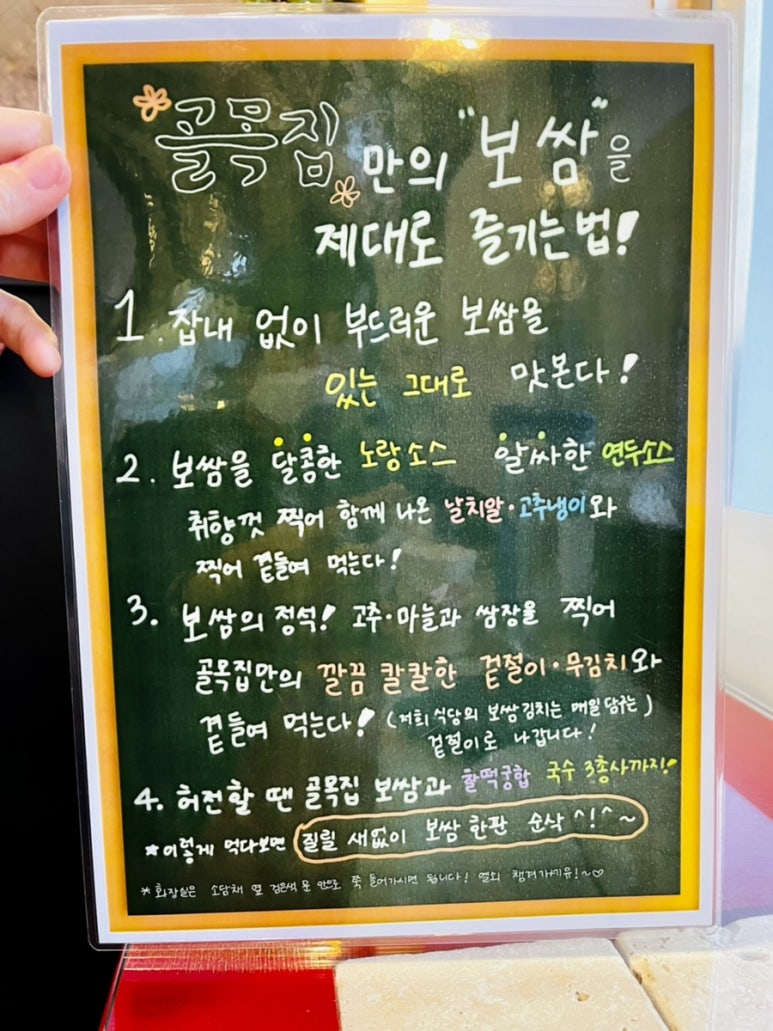 골목집만의 "보쌈"을
제대로 즐기는법!
1. 잡내 없이 부드러운 보쌈을
있는 그대로 맛본다!
2. 보쌈을 달콤한 노랑소스 알싸한 연두소스
취향껏 찍어 함께 나온 날치알·고추냉이와
찍어 곁들여 먹는다!
3. 보쌈의 정석! 고추·마늘과 쌈장을 찍어
골목집만의 깔끔 칼칼한 겉절이·무김치와
곁들여 먹는다! (저희 식당의 보쌈김치는 매일 담구는)
겉절이로 나갑니다!
4. 허전할 땐 골목집 보쌈과 찰떡궁합 국수 3총사까지!
*이렇게 먹다보면 질릴 새없이 보쌈 한판 순삭^!^~
*화장실은 소담채 옆 검은색 문 안으로 쭉 들어가시면 됩니다! 열쇠 챙겨가세유!~♡